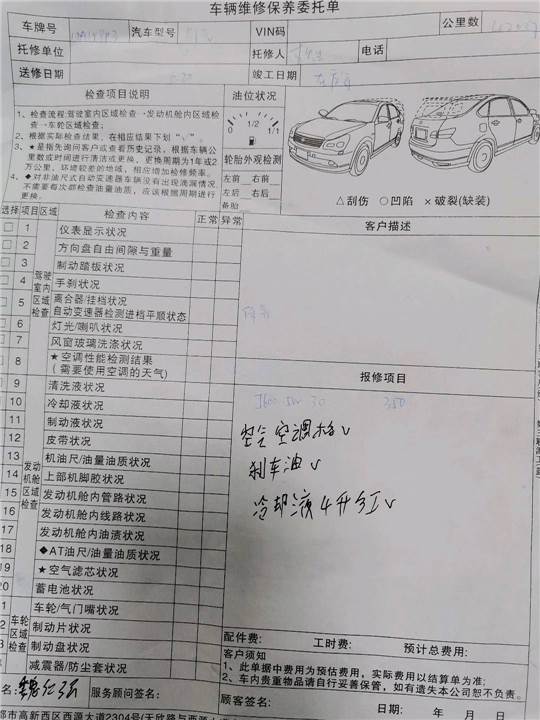 车辆维修保养委托单
车牌号 汽车型号 VIN码 公里数
托修单位 托修人 电话
送修日期 竣工日期
检查项目说明 油位状况
1、检查流程:驾驶室内区域检查→发动机舱内区域检查→车轮区域检查;
2、根据实际检查结果,在相应结果下划“√”。
3、★是指先询问客户或查看历史记录,根据车辆公里数或时间进行清洁或更换,更换周期为1年或2万公里,环境较差的地域,相应增加检修频率。
4、◆对非油尺式自动变速器车辆没有出现洩漏情况,不需要每次都检查油量油质,应该根据周期进行更换。
0 1/2 1/1
轮胎外观检测
左前 右前
左后 右后
备胎
△刮伤 ○凹陷 ×破裂(缺装)
选择 项目 区域 检查内容 正常 异常 客户描述
驾驶室内区域检查
1 仪表显示状况
2 方向盘自由间隙与重量
3 制动踏板状况
4 手刹状况
5 离合器/挂档状况
自动变速器检测进档平顺状态
6 灯光/喇叭状况
7 风窗玻璃洗涤状况
8 ★空调性能检测结果
(需要使用空调的天气)
报修项目
发动机舱区域检查
9 清洗液状况
10 冷却液状况
11 制动液状况
12 皮带状况
13 机油尺/油量油质状况
14 上部机脚胶状况
15 发动机舱内管路状况
16 发动机舱内线路状况
17 发动机舱内油渍状况
18 ◆AT油尺/油量油质状况
19 ★空气滤芯状况
20 蓄电池状况
空调格√
刹车油√
冷却液4升
车轮区域检查
1 车轮/气门嘴状况
2 制动片状况
3 制动盘状况
减震器/防尘套状况
配件费: 工时费: 预计总费用:
客户须知
1、此单据中费用为预估费用,实际费用以结算单为准;
2、车内贵重物品请自行妥善保管,如有遗失本公司恕不负责。
名: 服务顾问签名: 顾客签名:
都市高新区西源大道2304号(天欣路与西源